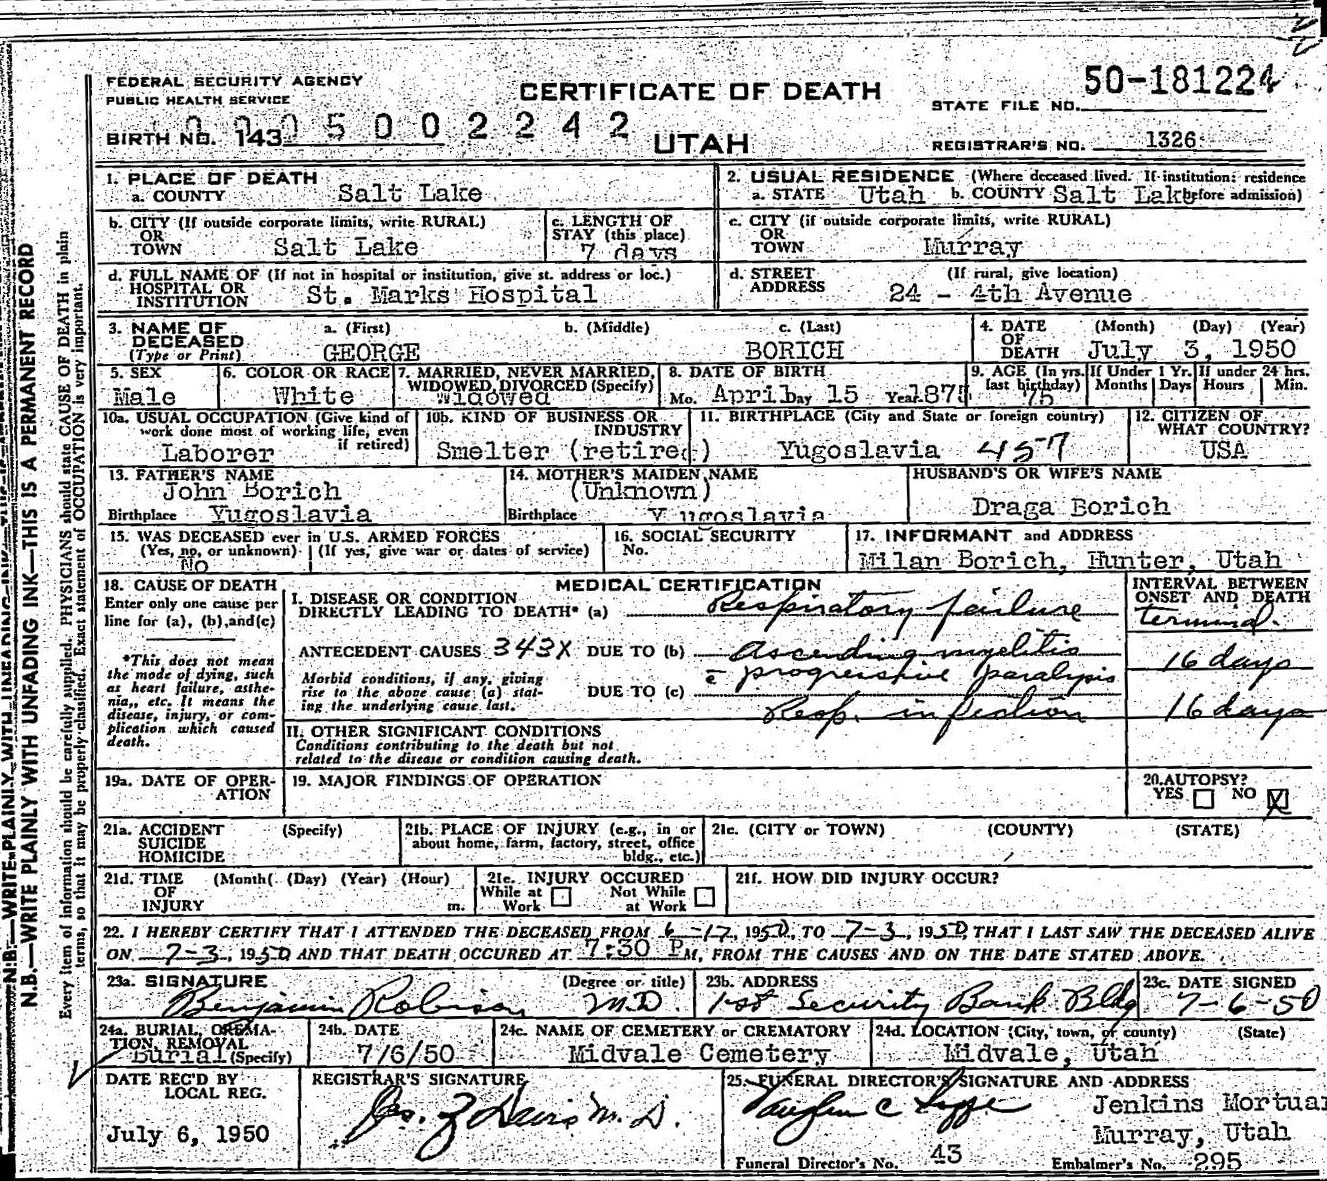 FEDERAL SECURITY AGENCY
PUBLIC HEALTH SERVICE
BIRTH NO. 143 0 5 0 0 2 2 4 2
CERTIFICATE OF DEATH
UTAH
50-181224
STATE FILE NO.
REGISTRAR'S NO. 1326
N.B.—WRITE PLAINLY WITH UNFADING INK—THIS IS A PERMANENT RECORD
Every item of information should be carefully supplied. PHYSICIANS should state CAUSE OF DEATH in plain
terms, so that it may be properly classified. Exact statement of OCCUPATION is very important.
1. PLACE OF DEATH
a. COUNTY Salt Lake
2. USUAL RESIDENCE (Where deceased lived. If institution: residence
a. STATE Utah b. COUNTY Salt Lake before admission)
b. CITY (If outside corporate limits, write RURAL)
OR
TOWN Salt Lake
c. LENGTH OF
STAY (this place)
7 days
c. CITY (if outside corporate limits, write RURAL)
OR
TOWN Murray
d. FULL NAME OF (If not in hospital or institution, give st. address or loc.)
HOSPITAL OR
INSTITUTION St. Marks Hospital
d. STREET (If rural, give location)
ADDRESS 24 - 4th Avenue
3. NAME OF
DECEASED
(Type or Print)
a. (First) b. (Middle) c. (Last)
GEORGE BORICH
4. DATE (Month) (Day) (Year)
OF
DEATH July 3, 1950
5. SEX
Male
6. COLOR OR RACE
White
7. MARRIED, NEVER MARRIED,
WIDOWED, DIVORCED (Specify)
Widowed
8. DATE OF BIRTH
Mo. April Day 15 Year 1875
9. AGE (In yrs.
last birthday)
75
If Under 1 Yr.
Months Days
If under 24 hrs.
Hours Min.
10a. USUAL OCCUPATION (Give kind of
work done most of working life, even
if retired)
Laborer
10b. KIND OF BUSINESS OR
INDUSTRY
Smelter (retired)
11. BIRTHPLACE (City and State or foreign country)
Yugoslavia 457
12. CITIZEN OF
WHAT COUNTRY?
USA
13. FATHER'S NAME
John Borich
Birthplace Yugoslavia
14. MOTHER'S MAIDEN NAME
(Unknown)
Birthplace Yugoslavia
HUSBAND'S OR WIFE'S NAME
Draga Borich
15. WAS DECEASED ever in U.S. ARMED FORCES
(Yes, no, or unknown) (If yes, give war or dates of service)
No
16. SOCIAL SECURITY
No.
17. INFORMANT and ADDRESS
Milan Borich, Hunter, Utah
18. CAUSE OF DEATH
Enter only one cause per
line for (a), (b), and (c)
*This does not mean
the mode of dying, such
as heart failure, asthe-
nia, etc. It means the
disease, injury, or com-
plication which caused
death.
MEDICAL CERTIFICATION
I. DISEASE OR CONDITION
DIRECTLY LEADING TO DEATH* (a) Respiratory failure
ANTECEDENT CAUSES 343X DUE TO (b) Ascending myelitis
c̄ progressive paralysis
Morbid conditions, if any, giving
rise to the above cause (a) stat-
ing the underlying cause last.
DUE TO (c) Resp. infection
INTERVAL BETWEEN
ONSET AND DEATH
terminal.
16 days
16 days
II. OTHER SIGNIFICANT CONDITIONS
Conditions contributing to the death but not
related to the disease or condition causing death.
19a. DATE OF OPER-
ATION
19. MAJOR FINDINGS OF OPERATION
20. AUTOPSY?
YES NO X
21a. ACCIDENT (Specify)
SUICIDE
HOMICIDE
21b. PLACE OF INJURY (e.g., in or
about home, farm, factory, street, office
bldg., etc.)
21c. (CITY or TOWN) (COUNTY) (STATE)
21d. TIME (Month( (Day) (Year) (Hour)
OF
INJURY m.
21e. INJURY OCCURED
While at Not While
Work at Work
21f. HOW DID INJURY OCCUR?
22. I HEREBY CERTIFY THAT I ATTENDED THE DECEASED FROM 6-17, 1950, TO 7-3, 1950, THAT I LAST SAW THE DECEASED ALIVE
ON 7-3, 1950, AND THAT DEATH OCCURED AT 7:30 P M, FROM THE CAUSES AND ON THE DATE STATED ABOVE.
23a. SIGNATURE (Degree or title)
Benjamin Robison M.D.
23b. ADDRESS
1st Security Bank Bldg
23c. DATE SIGNED
7-6-50
24a. BURIAL, CREMA-
TION, REMOVAL
Burial (Specify)
24b. DATE
7/6/50
24c. NAME OF CEMETERY or CREMATORY
Midvale Cemetery
24d. LOCATION (City, town, or county) (State)
Midvale, Utah
DATE REC'D BY
LOCAL REG.
July 6, 1950
REGISTRAR'S SIGNATURE
Davis M.D.
25. FUNERAL DIRECTOR'S SIGNATURE AND ADDRESS
Jenkins Mortuar
Murray, Utah
Funeral Director's No. 43 Embalmer's No. 295